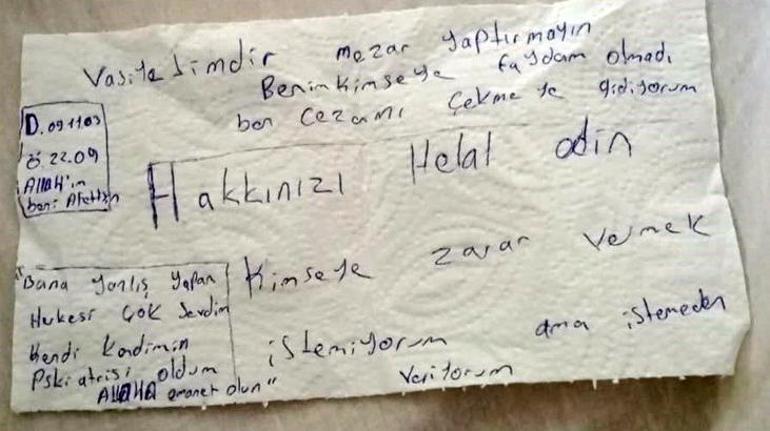 Vasiyetimdir mezar yaptırmayın
Benim kimseye faydam olmadı
ben cezamı çekmeye gidiyorum
D. 09.11.03
Ö. 22.09
Allah'ın
beni Afetsin
Hakkınızı Helal edin
Kimseye zarar vermek
istemiyorum ama istemeden
veriyorum
"Bana yanlış yapan
Hekesi çok sevdim
Kendi Kendimin
Pskiatrisi oldum
ALLAHA emanet olun"